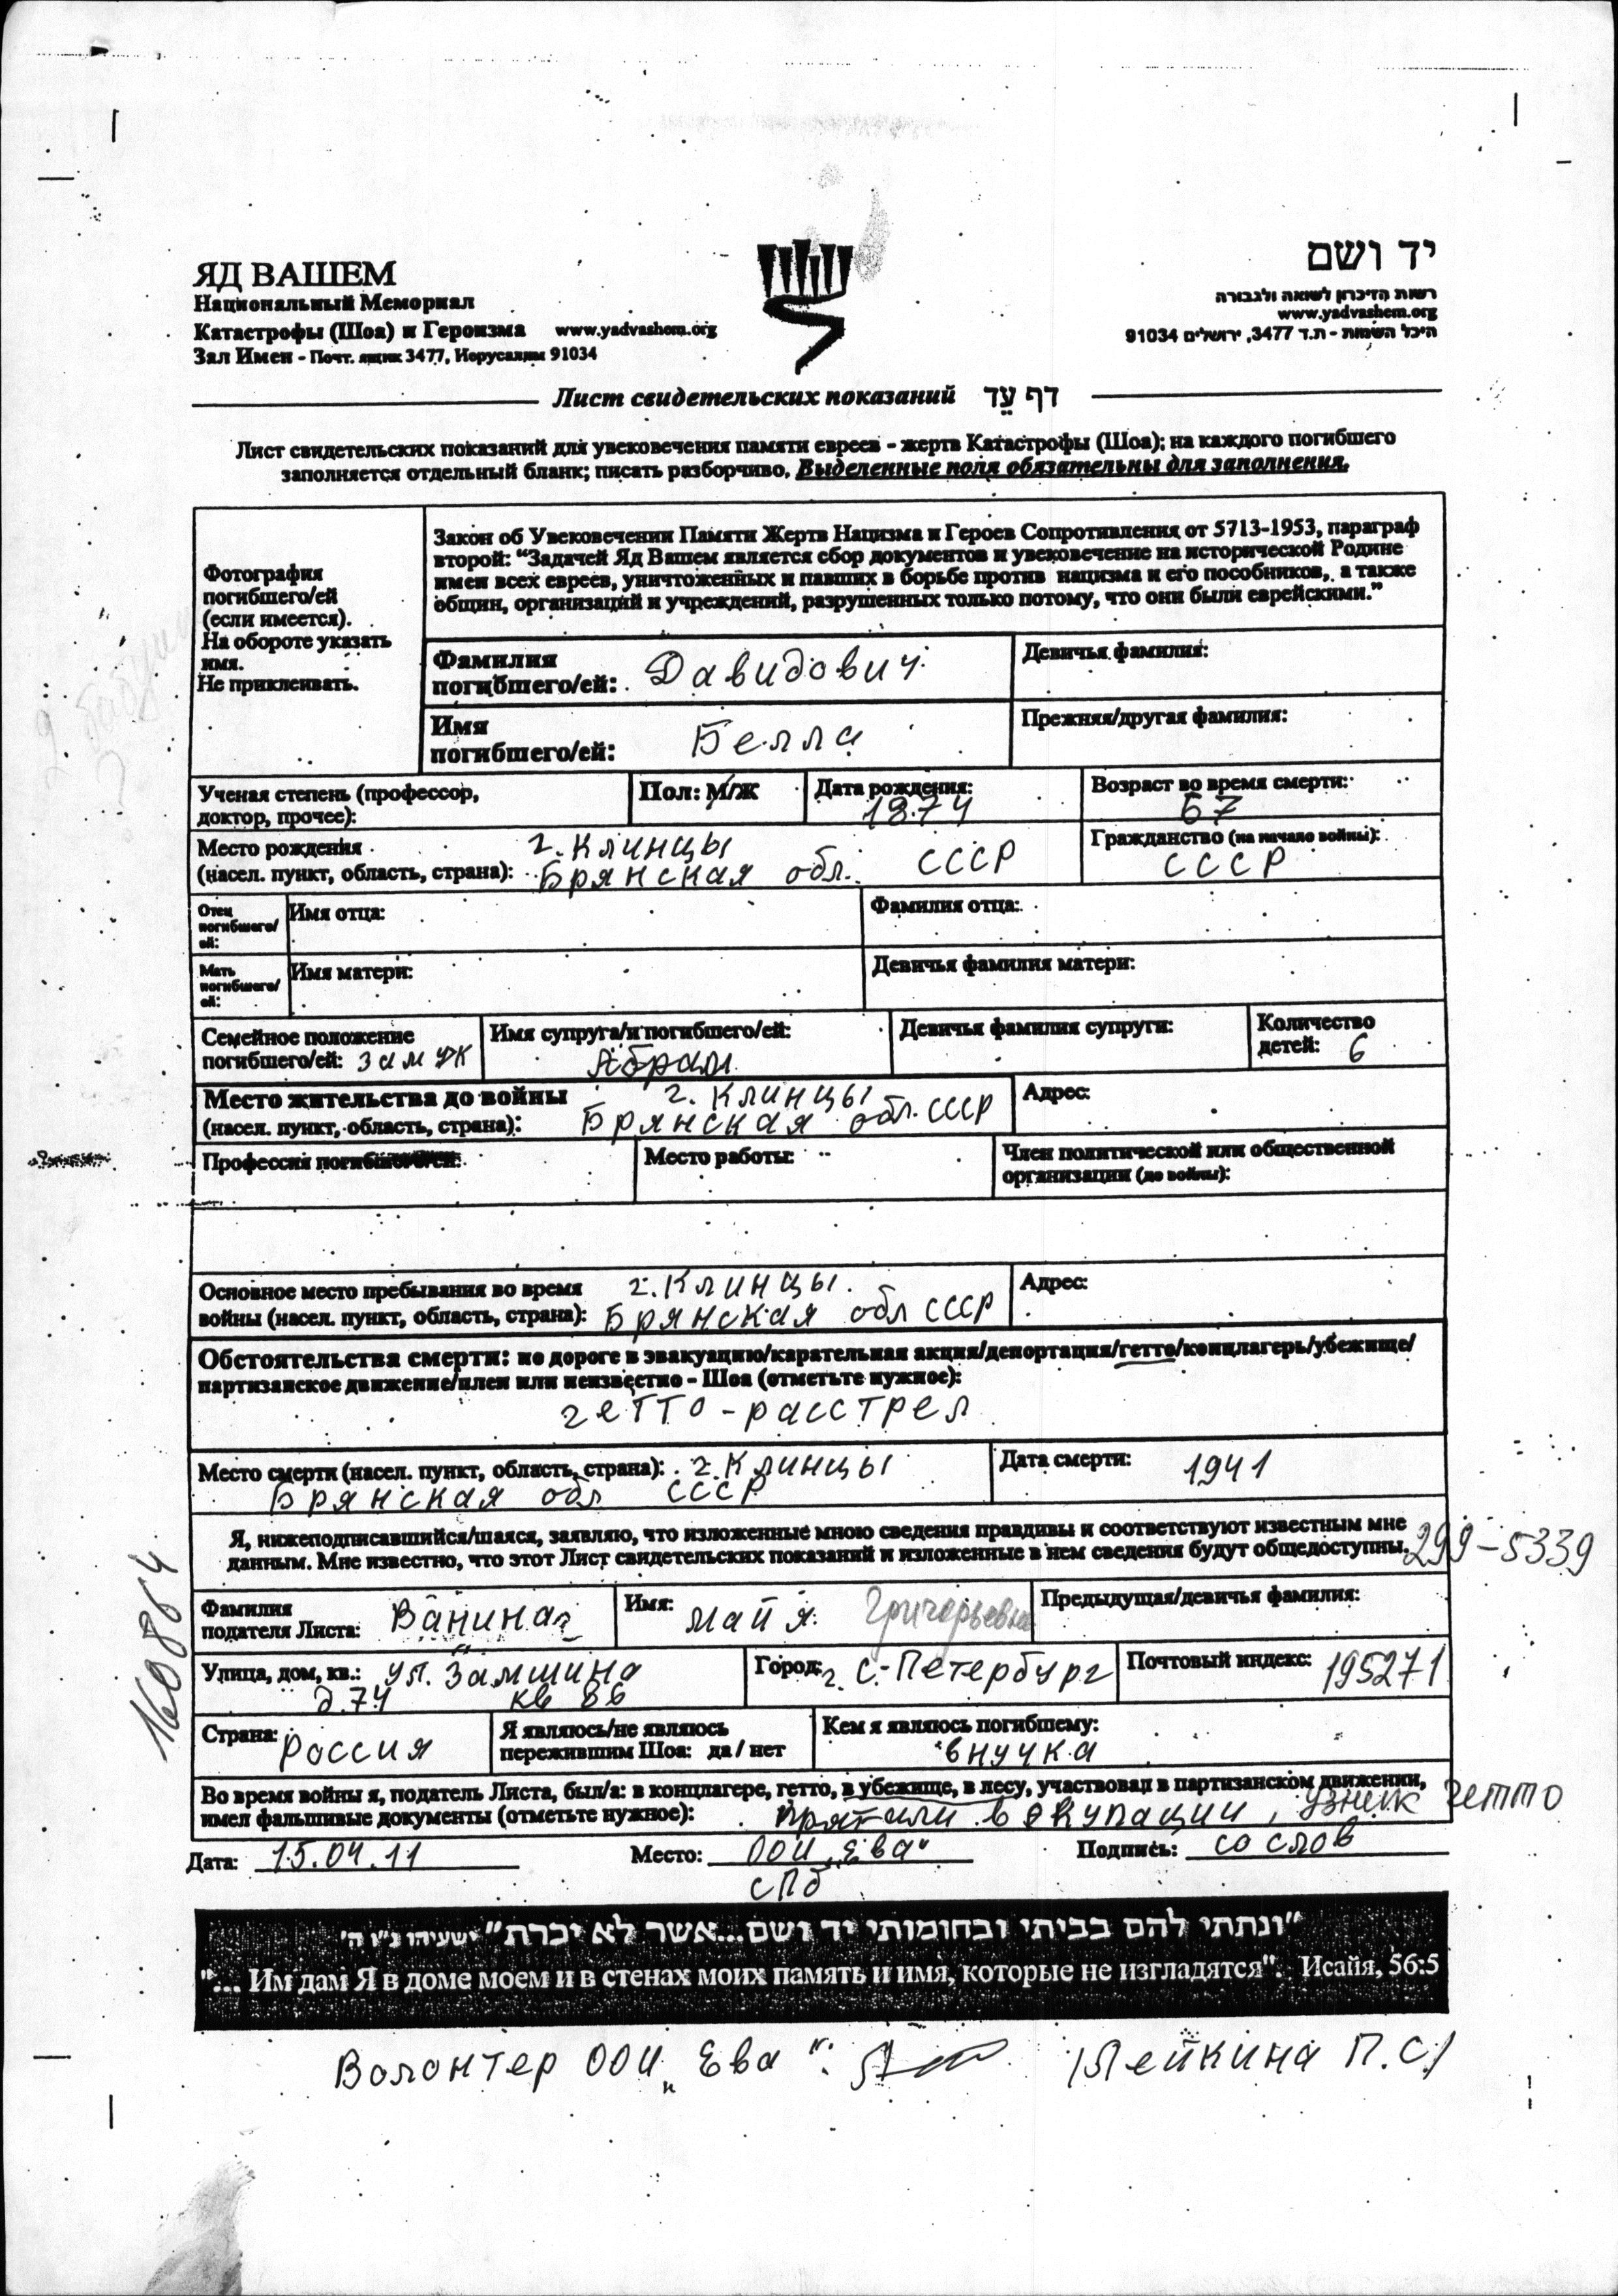 ЯД ВАШЕМ
Национальный Мемориал
Катастрофы (Шоа) и Героизма www.yadvashem.org
Зал Имен - Почт. ящик 3477, Иерусалим 91034
יד ושם
רשות הזיכרון לשואה ולגבורה
www.yadvashem.org
היכל השמות - ת.ד 3477, ירושלים 91034
Лист свидетельских показаний דף עֵד
Лист свидетельских показаний для увековечения памяти евреев - жертв Катастрофы (Шоа); на каждого погибшего
заполняется отдельный бланк; писать разборчиво. Выделенные поля обязательны для заполнения.
Фотография
погибшего/ей
(если имеется).
На обороте указать
имя.
Не приклеивать.
Закон об Увековечении Памяти Жертв Нацизма и Героев Сопротивления от 5713-1953, параграф
второй: “Задачей Яд Вашем является сбор документов и увековечение на исторической Родине
имен всех евреев, уничтоженных и павших в борьбе против нацизма и его пособников, а также
общин, организаций и учреждений, разрушенных только потому, что они были еврейскими.”
Фамилия
погибшего/ей: Давидович
Девичья фамилия:
Имя
погибшего/ей: Белла
Прежняя/другая фамилия:
Ученая степень (профессор,
доктор, прочее):
Пол: М/Ж
Дата рождения:
1874
Возраст во время смерти:
67
Место рождения г. Клинцы
(насел. пункт, область, страна): Брянская обл. СССР
Гражданство (на начало войны):
СССР
Отец
погибшего/
ей:
Имя отца:
Фамилия отца:
Мать
погибшего/
ей:
Имя матери:
Девичья фамилия матери:
Семейное положение
погибшего/ей: замуж
Имя супруга/и погибшего/ей:
Абрам
Девичья фамилия супруги:
Количество
детей: 6
Место жительства до войны г. Клинцы
(насел. пункт, область, страна): Брянская обл. СССР
Адрес:
Профессия погибшего/ей:
Место работы:
Член политической или общественной
организации (до войны):
Основное место пребывания во время г. Клинцы.
войны (насел. пункт, область, страна): Брянская обл СССР
Адрес:
Обстоятельства смерти: по дороге в эвакуацию/карательная акция/депортация/гетто/концлагерь/убежище/
партизанское движение/плен или неизвестно - Шоа (отметьте нужное):
гетто - расстрел
Место смерти (насел. пункт, область, страна): г. Клинцы
Брянская обл СССР
Дата смерти: 1941
Я, нижеподписавшийся/шаяся, заявляю, что изложенные мною сведения правдивы и соответствуют известным мне
данным. Мне известно, что этот Лист свидетельских показаний и изложенные в нем сведения будут общедоступны.
299-5339
160864
Фамилия
подателя Листа: Ванина
Имя: Майя Григорьевна
Предыдущая/девичья фамилия:
Улица, дом, кв.: ул. Замшина
д. 74 кв 86
Город: г. С-Петербург
Почтовый индекс: 195271
Страна: Россия
Я являюсь/не являюсь
пережившим Шоа: да / нет
Кем я являюсь погибшему:
внучка
Во время войны я, податель Листа, был/а: в концлагере, гетто, в убежище, в лесу, участвовал в партизанском движении,
имел фальшивые документы (отметьте нужное): прятали в окупации, узник гетто
Дата: 15.04.11
Место: ООИ „Ева“
СПб
Подпись: со слов
"ונתתי להם בביתי ובחומותי יד ושם...אשר לא יכרת" ישעיהו נ"ו ה'
"... Им дам Я в доме моем и в стенах моих память и имя, которые не изгладятся". Исайя, 56:5
Волонтер ООИ „Ева“: /Лейкина П.С/